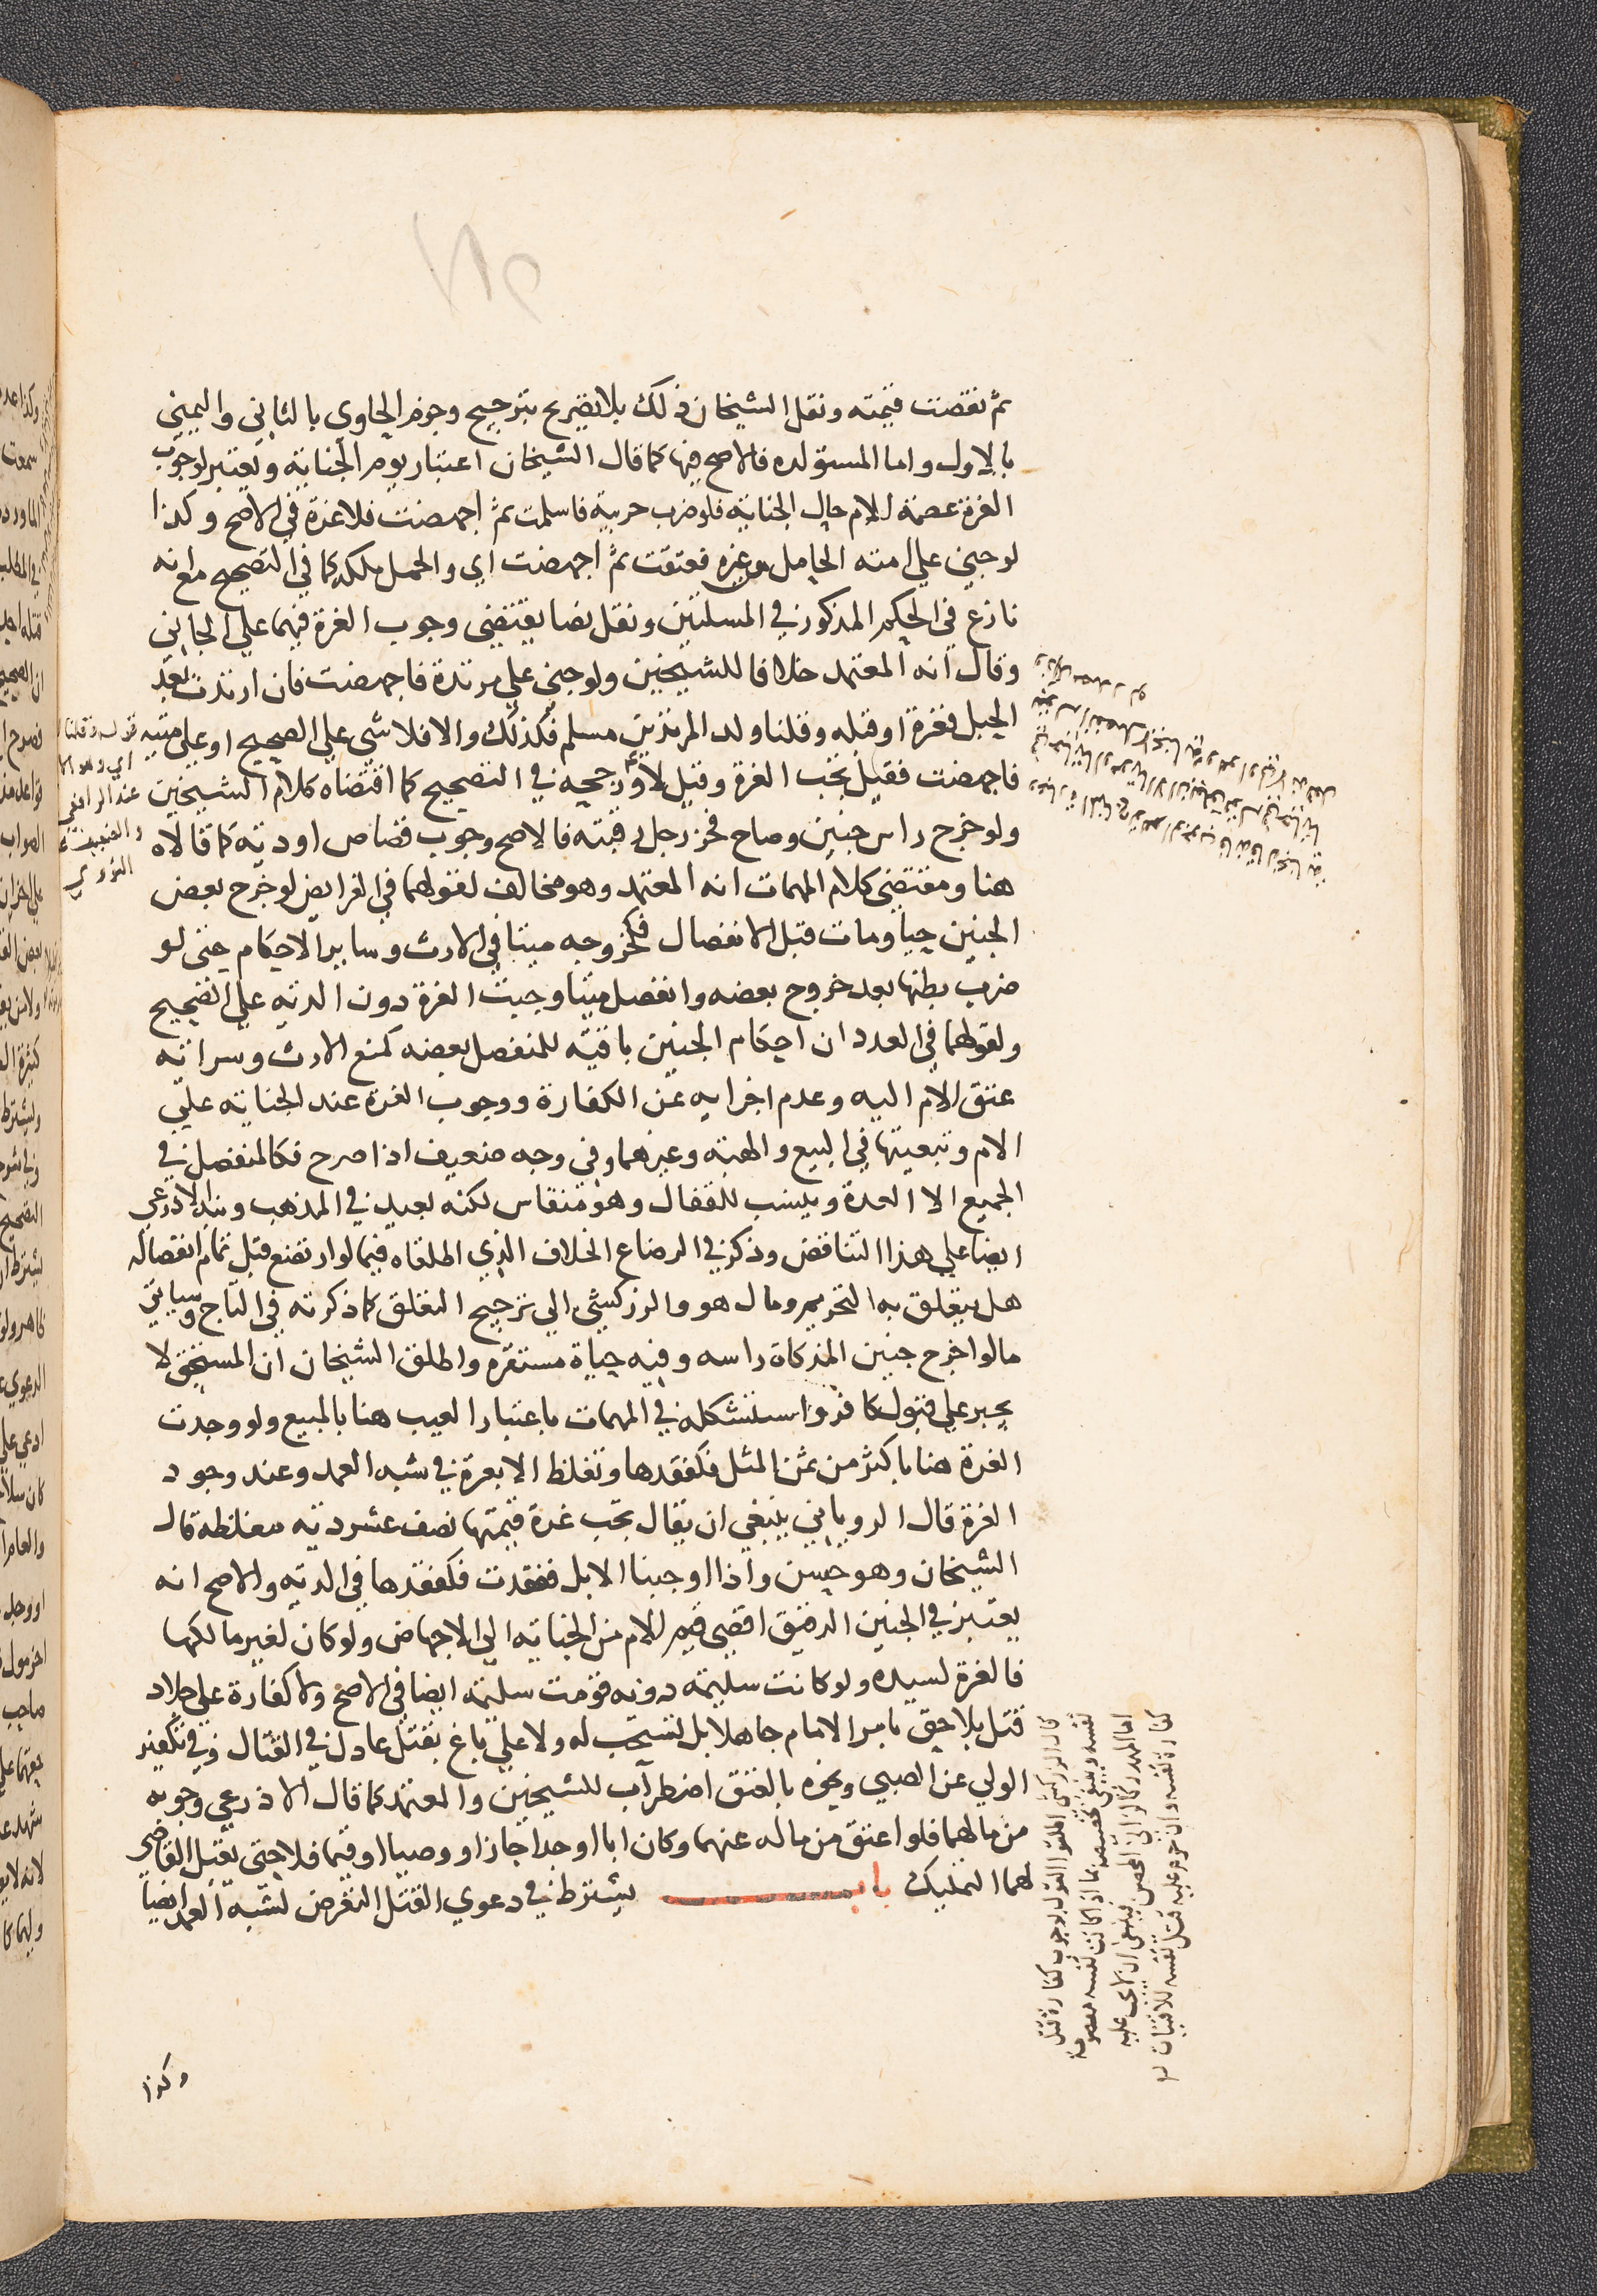 ثم نقصت قيمته ونقل الشيخان ذلك بلا تصريح بترجيح وجزم الحاوي بالثاني واليمني
بالاول واما المستولده فالاصح فيها كما قال الشيخان اعتبار يوم الجناية ويعتبر لوجوب
الغرة عصمة الام حال الجناية فلو ضرب حربية فاسلمت ثم اجهضت فلا غرة في الاصح وكذا
لو جني علي امته الحامل من غيره فعتقت ثم اجهضت اي والحمل ملكه كما في التصحيح مع انه
نازع في الحكم المذكور في المسئلتين ونقل نصا يقتضي وجوب الغرة فيهما علي الجاني
وقال انه المعتمد خلافا للشيخين ولو جني علي مرتدة فاجهضت فان ارتدت بعد
الحبل فغرة او قبله وقلنا ولد المرتدين مسلم فكذلك والا فلا شي علي الصحيح او علي ميتة
فاجهضت فقيل تجب الغرة وقيل لا ورجحه في التصحيح كما اقتضاه كلام الشيخين
ولو خرج راس جنين وصاح فحز رجل رقبته فالاصح وجوب قصاص او دية كما قالاه
هنا ومقتضي كلام المهمات انه المعتمد وهو مخالف لقولهما في الفرايض لو خرج بعض
الجنين حيا ومات قبل الانفصال فكخروجه ميتا في الارث وساير الاحكام حتى لو
ضرب بطنها بعد خروج بعضه وانفصل ميتا وجبت الغرة دون الدية علي الصحيح
ولقولهما في العدد ان احكام الجنين باقية للمنفصل بعضه كمنع الارث وسراية
عتق الام اليه وعدم اجزايه عن الكفارة ووجوب الغرة عند الجناية علي
الام وتبعيتها في البيع والهبة وغيرهما وفي وجه ضعيف اذا صرح فكالمنفصل في
الجميع الا العدة وينسب للقفال وهو منقاس لكنه بعيد في المذهب ونبه الاذرعي
ايضا علي هذا التناقض وذكر في الرضاع الخلاف الذي اطلقاه فيما لو ارتضع قبل تمام انفصاله
هل يتعلق به التحريم ومال هو والزركشي الي ترجيح التعلق كما ذكرته في التاج وسياتي
ما لو اخرج جنين المذكاة راسه وفيه حياة مستقرة واطلق الشيخان ان المستحق لا
يجبر علي قبول كافر واستشكله في المهمات باعتبار العيب هنا بالمبيع ولو وجدت
الغرة هنا باكثر من ثمن المثل فكفقدها وتغلظ الابعرة في شبه العمد وعند وجود
الغرة قال الروياني ينبغي ان يقال تجب غرة قيمتها نصف عشر دية مغلظه قال
الشيخان وهو حسن واذا اوجبنا الابل ففقدت فكفقدها في الدية والاصح انه
يعتبر في الجنين الرقيق اقصي قيم الام من الجناية الي الاجهاض ولو كان لغير مالكها
فالغرة لسيده ولو كانت سليمة دونه قومت سليمة ايضا في الاصح ولا كفارة علي جلاد
قتل بلا حق بامر الامام جاهلا بل تستحب له ولا علي باغ بقتل عادل في القتال وفي تكفير
الولي عن الصبي ونحوه بالعتق اضطراب للشيخين والمعتمد كما قال الاذرعي وجوبه
من مالهما فلو اعتق من ماله عنهما وكان ابا او جدا جاز او وصيا او قيما فلا حتى يقبل القاضي
لهما التمليك باب يشترط في دعوي القتل التعرض لشبه العمد ايضا
وكذا
قوله وقلنا
اي وهو
عند الرافعي
النووي
قال الزركشي اطلقوا القول بوجوب كفارة قتل
نفسه وينبغي تخصيصه بما اذا كانت نفسه معصومة
اما المهدر كالزاني المحصن فينبغي ان لا يجب عليه
كفارة نفسه وان حرم عليه قتل نفسه للافتيات